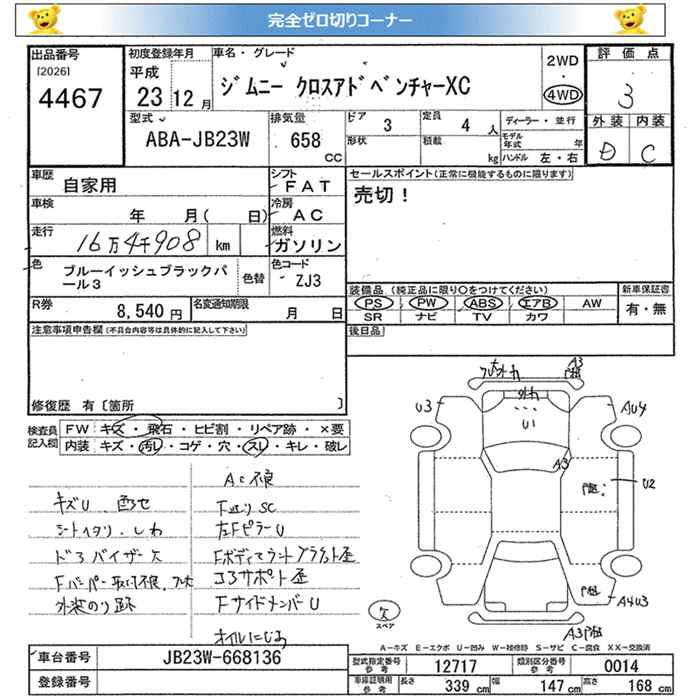 完全ゼロ切りコーナー
出品番号
[2026]
4467
初度登録年月
平成
23 12 月
車名・グレード
ジムニー クロスアドベンチャーXC
2WD
・
4WD
評価点
3
外装 内装
D C
型式
ABA-JB23W
排気量
658
CC
ドア
3
定員
4 人
形状
積載
kg
ディーラー・並行
モデル年式 年
ハンドル 左・右
車歴
自家用
シフト
FAT
車検
年 月( 日)
冷房
AC
走行
16万4千908 km
燃料
ガソリン
色
ブルーイッシュブラックパール3
色替
色コード
ZJ3
R券
8,540 円
名変通知期限
月 日
セールスポイント(正常に機能するものに限ります)
売切!
装備品 (純正品に限り○をつけてください)
PS PW ABS エアB AW
SR ナビ TV カワ
新車保証書
有・無
後日品
注意事項申告欄(不具合内容等は具体的に記入して下さい)
修復歴 有〔箇所 〕
検査員記入欄
FW キズ・飛石・ヒビ割・リペア跡・×要
内装 キズ・汚レ・コゲ・穴・スレ・キレ・破レ
AC不良
キズU
シートイタリ.しわ
ドアバイザー欠
外装のり跡
左FピラーU
コアサポート歪
FサイドメンバーU
オイルにじみ
A3
U3
AU4
U1
A3
U2
A4U3
A3
欠
スペア
A-キズ E-エクボ U-凹み W-補修跡 S-サビ C-腐食 XX-交換済
車台番号
JB23W-668136
登録番号
型式指定番号
参考
12717
類別区分番号
参考
0014
車庫証明用
参考
長さ 339 cm
幅 147 cm
高さ 168 cm